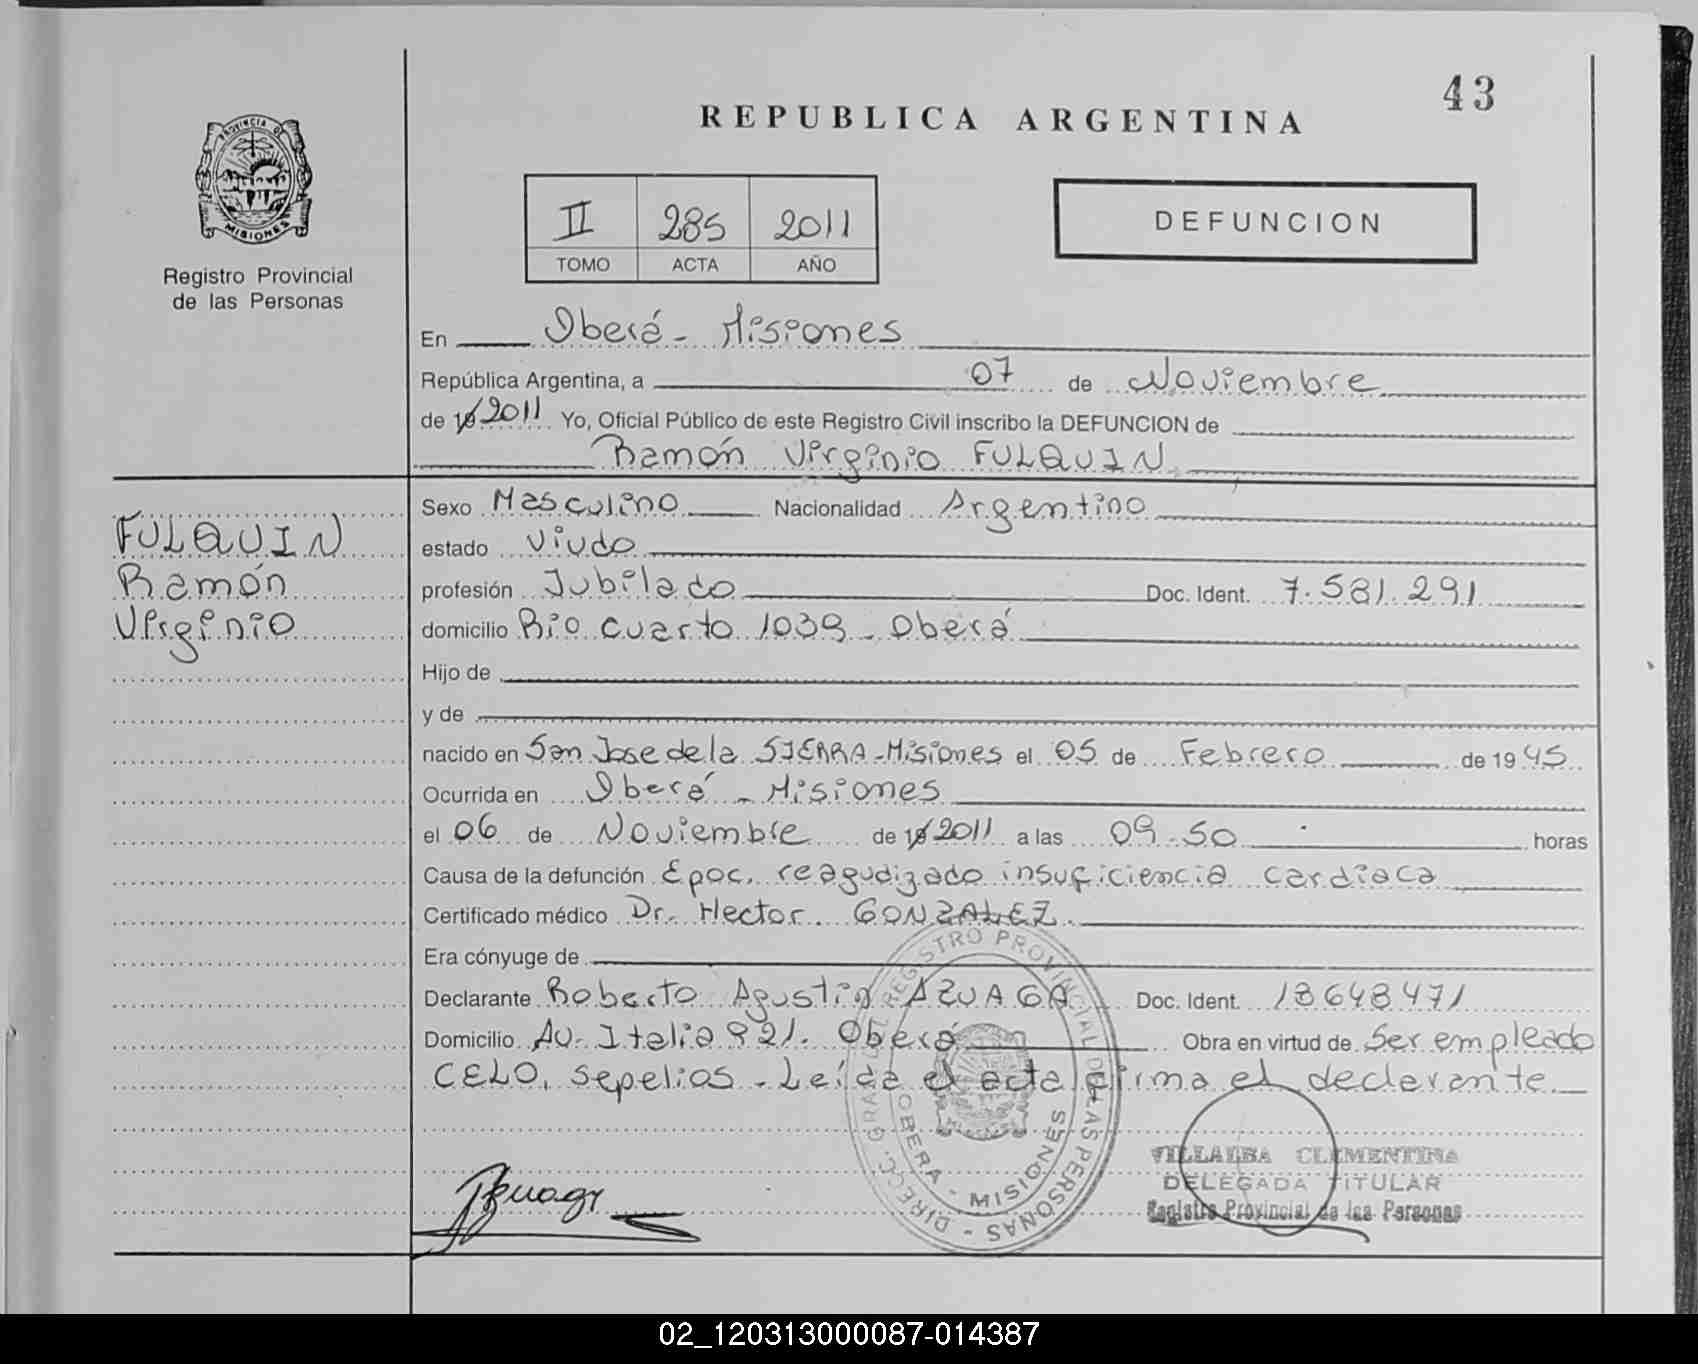 43
REPUBLICA ARGENTINA
PROVINCIA DE
MISIONES
Registro Provincial
de las Personas
II 285 2011
TOMO ACTA AÑO
DEFUNCION
En Oberá - Misiones
República Argentina, a 07 de Noviembre
de 19 2011 Yo, Oficial Público de este Registro Civil inscribo la DEFUNCION de
Ramón Virginio FULQUIN
FULQUIN
Ramón
Virginio
Sexo Masculino Nacionalidad Argentino
estado Viudo
profesión Jubilado Doc. Ident. 7.581.291
domicilio Rio cuarto 1039 - Oberá
Hijo de
y de
nacido en San Jose de la SIERRA - Misiones el 05 de Febrero de 1945
Ocurrida en Oberá - Misiones
el 06 de Noviembre de 19 2011 a las 09.50 horas
Causa de la defunción Epoc. reagudizado insuficiencia cardiaca
Certificado médico Dr. Hector GONZALEZ.
Era cónyuge de
Declarante Roberto Agustin AZUAGA Doc. Ident. 18648471
Domicilio Av. Italia 921. Oberá Obra en virtud de Ser empleado
CELO, sepelios - Leída el acta firma el declarante
DIRECC. GRAL. DEL REGISTRO PROVINCIAL DE LAS PERSONAS -
OBERA - MISIONES
Azuaga
VILLALBA CLEMENTINA
DELEGADA TITULAR
Registro Provincial de las Personas
02_120313000087-014387